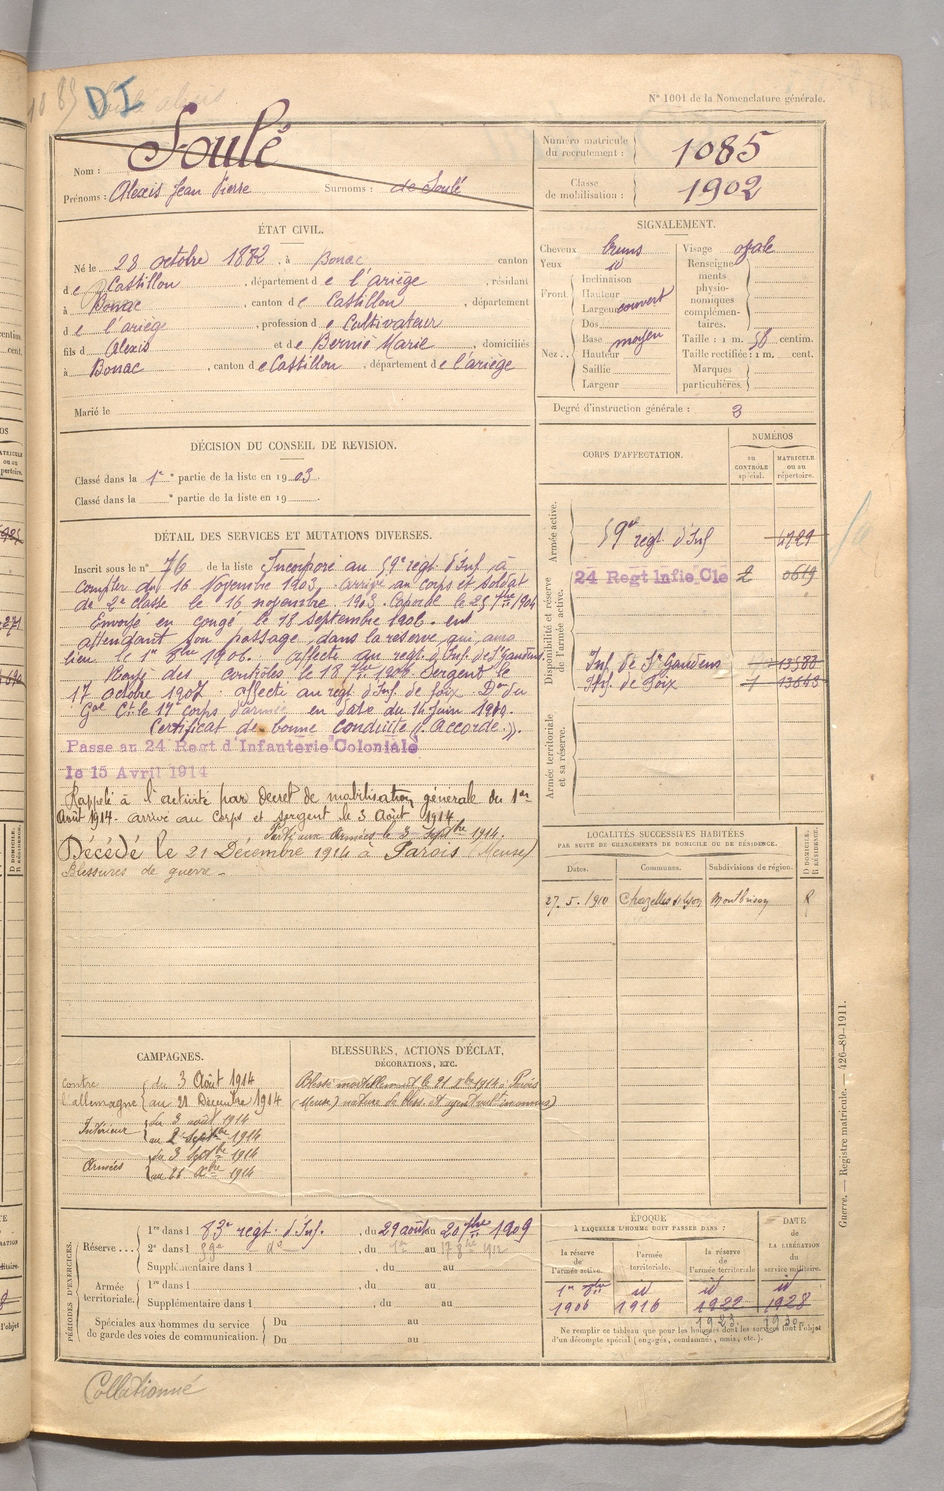 DI
N° 1001 de la Nomenclature générale.
Nom : Soulé
Prénoms : Alexis Jean Pierre Surnoms : de Soulé
Numéro matricule du recrutement : 1085
Classe de mobilisation : 1902
ÉTAT CIVIL.
Né le 28 octobre 1882, à Bonac canton
de Castillon, département de l'ariège, résidant
à Bonac, canton de Castillon, département
de l'ariège, profession de Cultivateur
fils d Alexis et de Bernié Marie, domiciliés
à Bonac, canton de Castillon, département de l'ariège
Marié le
SIGNALEMENT.
Cheveux bruns
Yeux id
Front. Inclinaison
Hauteur
Largeur couvert
Nez.. Dos
Base moyen
Hauteur
Saillie
Largeur
Visage ovale
Renseignements physionomiques complémentaires.
Taille : 1 m. 58 centim.
Taille rectifiée : 1 m. cent.
Marques particulières.
Degré d'instruction générale : 3
DÉCISION DU CONSEIL DE REVISION.
Classé dans la 1e partie de la liste en 1903.
Classé dans la " partie de la liste en 19
DÉTAIL DES SERVICES ET MUTATIONS DIVERSES.
Inscrit sous le n° 76 de la liste Incorporé au 59e regt d'Inf à
compter du 16 Novembre 1903. arrivé au corps et soldat
de 2e classe le 16 novembre 1903. Caporal le 25 7bre 1904
Envoyé en congé le 18 septembre 1906. en
attendant son passage dans la réserve qui aura
lieu le 1er 8bre 1906. affecté au regt d'Inf de St Gaudens.
Rayé des contrôles le 18 7bre 1906. Sergent le
17 octobre 1907. affecté au regt d'Inf. de foix. Don du
Gal Ct le 17e corps d'armée en date du 14 Juin 1910.
Certificat de bonne conduite "Accordé".
Passe au 24 Regt d'Infanterie Coloniale
le 15 Avril 1914
Rappelé à l'activité par décret de mobilisation générale du 1er
Août 1914. arrivé au corps et sergent le 3 Août 1914
Parti aux Armées le 3 Septbre 1914.
Décédé le 21 Décembre 1914 à Parois (Meuse)
Blessures de guerre.
CORPS D'AFFECTATION.
NUMÉROS
au CONTRÔLE spécial.
MATRICULE ou au répertoire.
Armée active.
59e regt d'Inf 4729
Disponibilité et réserve de l'armée active.
24 Regt Infie Cle 2 0619
Inf. de St Gaudens 13588
Inf. de Foix 13643
Armée territoriale et sa réserve.
LOCALITÉS SUCCESSIVES HABITÉES
PAR SUITE DE CHANGEMENTS DE DOMICILE OU DE RÉSIDENCE.
Dates. Communes. Subdivisions de région. D DOMICILE. R RÉSIDENCE.
27.5.1910 Chazelles s/ Lyon Montbrison R
CAMPAGNES.
contre l'allemagne du 3 Août 1914
au 21 Décembre 1914
Intérieur du 3 août 1914
au 2 Septbre 1914
Armées du 3 Septbre 1914
au 21 Xbre 1914
BLESSURES, ACTIONS D'ÉCLAT,
DÉCORATIONS, ETC.
Blessé mortellement le 21 Xbre 1914 à Parois
(Meuse) nature de bless. et agent vuln. inconnus)
PÉRIODES D'EXERCICES.
Réserve... 1re dans l 83e regt. d'Inf., du 29 août au 20 7bre 1909
2e dans l 59e do, du 1er au 17 8bre 1912
Supplémentaire dans l, du au
Armée territoriale. 1re dans l, du au
Supplémentaire dans l, du au
Spéciales aux hommes du service de garde des voies de communication. Du au
Du au
ÉPOQUE
À LAQUELLE L'HOMME DOIT PASSER DANS :
la réserve de l'armée active. l'armée territoriale. la réserve de l'armée territoriale
DATE DE LA LIBÉRATION du service militaire.
1er 8bre id id id
1906 1916 1922 1928
1923 1930
Ne remplir ce tableau que pour les hommes dont les services font l'objet
d'un décompte spécial (engagés, condamnés, omis, etc.).
Guerre. — Registre matricule. — 426-89-1911.
Collationné